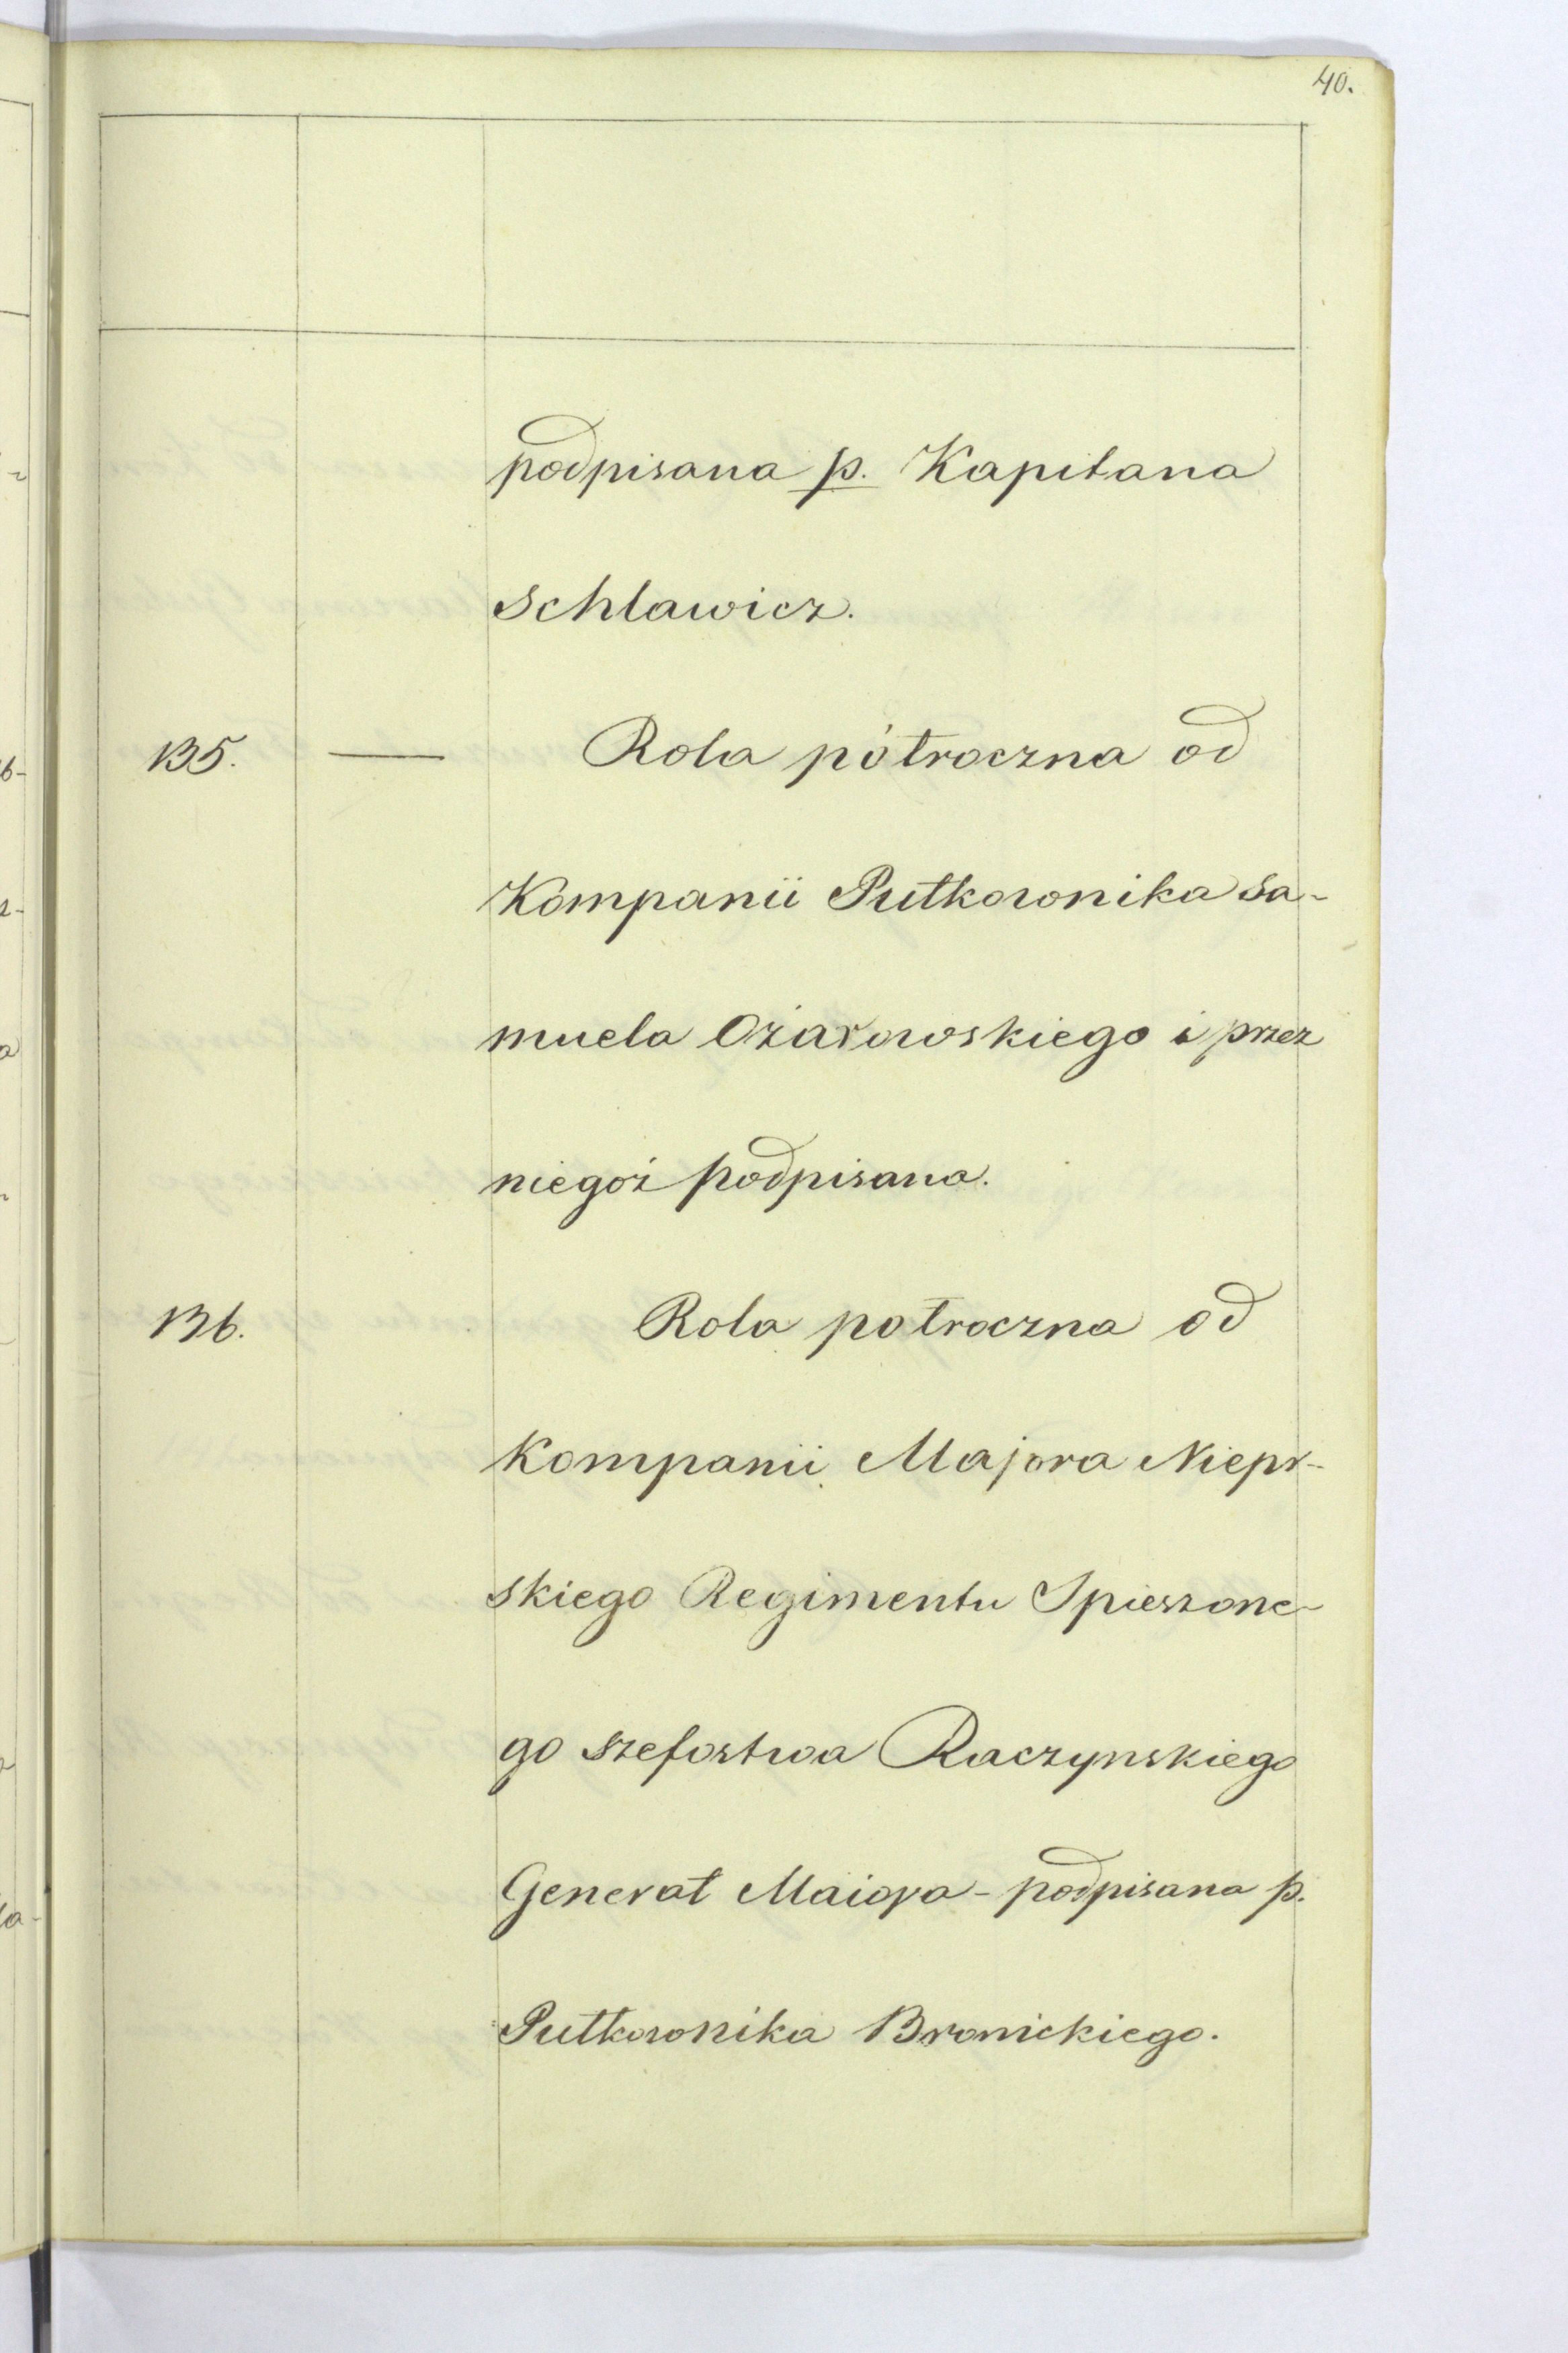 40.
podpisana p. Kapitana
Schlawicz.
135. — Rola pòtroczna od
Kompanii Pułkownika Sa-
muela Ożarowskiego i przez
niegoż podpisana.
136. Rola połroczna od
Kompanii Majora Niepr-
skiego Regimentu Spieszone-
go szefostwa Raczynskiego
Generał Maiora - podpisana p.
Pułkownika Bronickiego.